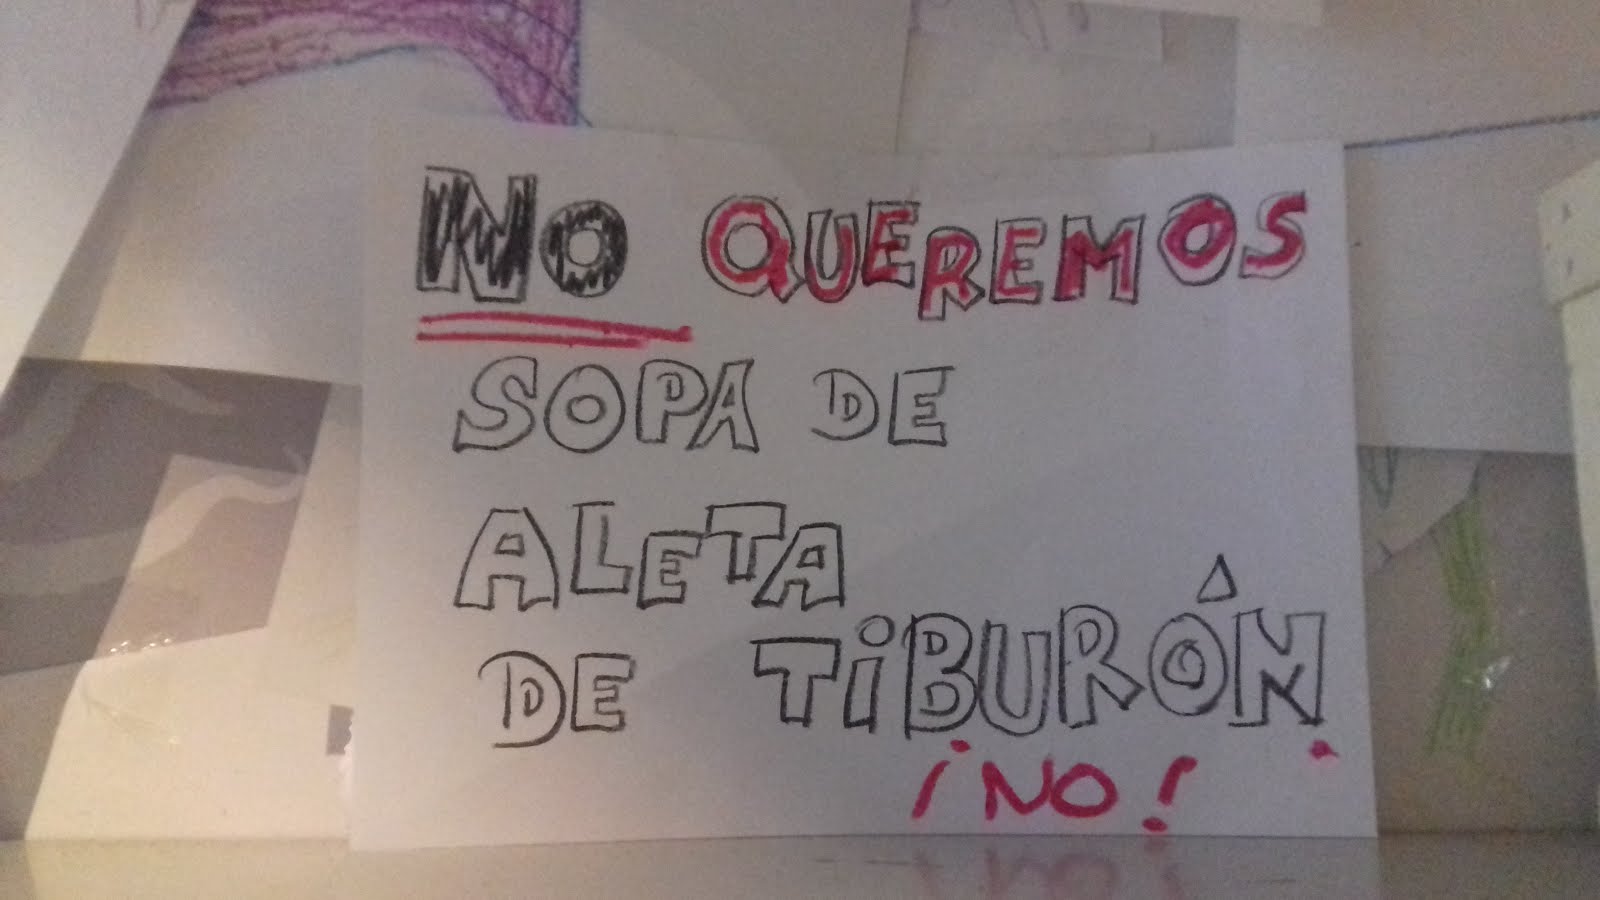 NO QUEREMOS
SOPA DE
ALETA
DE TIBURÓN
¡NO!